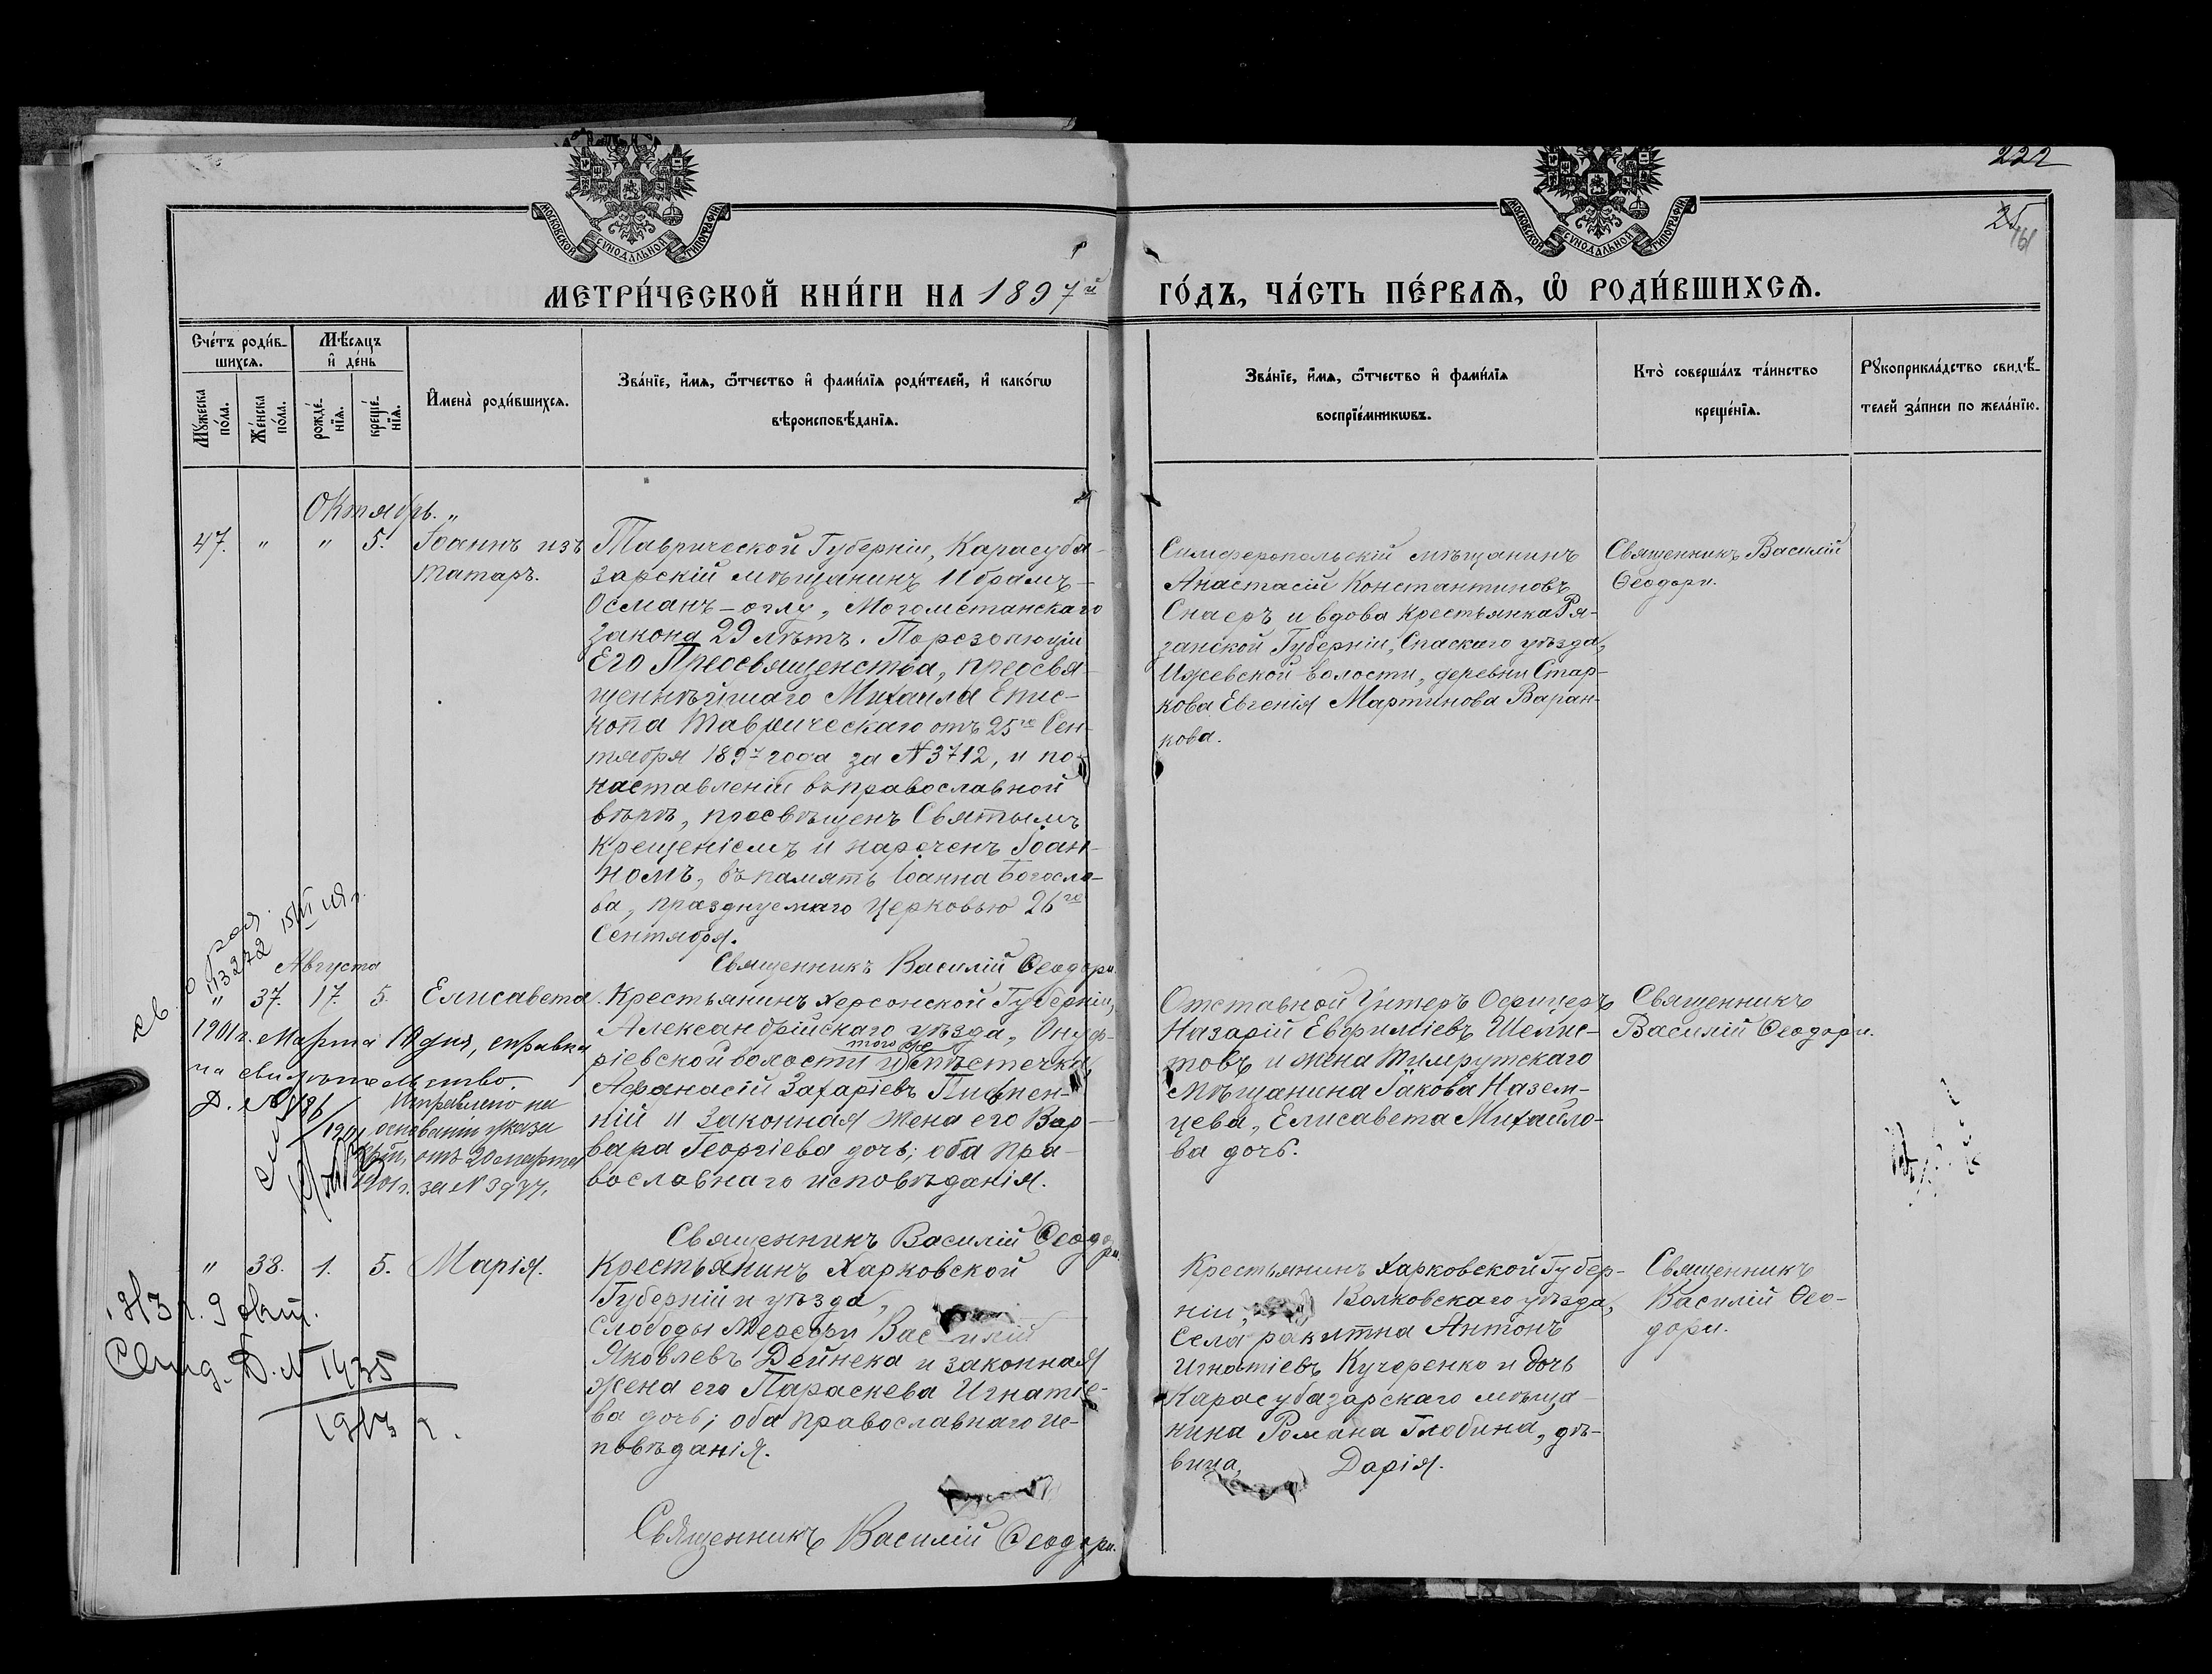 222
25
161
МОСКОВСКОЙ СѴНОДАЛЬНОЙ ТИПОГРАФІИ
МОСКОВСКОЙ СѴНОДАЛЬНОЙ ТИПОГРАФІИ
МЕТРИ́ЧЕСКОЙ КНИ́ГИ НА 1897й ГО́ДЪ, ЧА́СТЬ ПЕ́РВАѦ, Ѡ҆ РОДИ́ВШИХСѦ.
Сче́тъ роди́в-
шихсѧ.
Мꙋ́жеска по́ла.
Же́нска по́ла.
Мѣ́сѧцъ
и҆ де́нь
рожде́-
нїѧ.
креще́-
нїѧ.
И҆мена̀ роди́вшихсѧ.
Зва́нїе, и҆́мѧ, ѻ҆́тчество и҆ фами́лїѧ роди́телей, и҆ како́гѡ
вѣроисповѣ́данїѧ.
Зва́нїе, и҆́мѧ, ѻ҆́тчество и҆ фами́лїѧ
воспрїе́мникѡвъ.
Кто̀ соверша́лъ та́инство
креще́нїѧ.
Рꙋкоприкла́дство свидѣ́-
телей за́писи по жела́нїю.
Октябрь. „
47. „ „ 5. Іоаннъ изъ
татаръ.
Таврической Губерніи, Карасуба-
зарскій мѣщанинъ Ибрамъ-
Османъ-оглу, Могометанскаго
закона 29 лѣтъ. По резолюціи
Его Преосвященства, преосвя-
щеннѣйшаго Михаила Епис-
копа Таврическаго отъ 25го Сен-
тября 1897 года за №3712, и по-
наставленіи въ православной
вѣрѣ, просвѣщенъ Святымъ
Крещеніемъ и нареченъ Іоан-
номъ, въ память Іоанна Богосло-
ва, празднуемаго Церковью 26го
Сентября.
Священникъ Василій Ѳеодори.
Симферопольскій мѣщанинъ
Анастасій Константиновъ
Снаеръ и вдова крестьянка Ря-
занской Губерніи, Спаскаго уѣзда,
Ижевской волости, деревни Стар-
кова Евгенія Мартинова Варан-
кова.
Священникъ Василій
Ѳеодори.
Августа
„ 37. 17. 5. Елисавета.
Крестьянинъ Херсонской Губерніи,
Александрійскаго уѣзда, Онуф-
ріевской волости того же и мѣстечка,
Аѳанасій Захаріевъ Пивнен-
ній и законная жена его Вар-
вара Георгіева дочь; оба пра-
вославнаго исповѣданія.
Священникъ Василій Ѳеодори.
Отставной Унтеръ Офицеръ
Назарій Евфиміевъ Шелис-
товъ и жена Тимрутскаго
мѣщанина Іакова Назем-
цева, Елисавета Михайло-
ва дочь.
Священникъ
Василій Ѳеодори.
13272
1901г. Марта 10 дня, справка
на свидѣтельство.
Д. №
Исправлено на
основаніи указа
отъ 20 марта
1901г. за № 3977.
„ 38. 1. 5. Марія.
Крестьянинъ Харковской
Губерніи и уѣзда,
Слободы Мерефи Василій
Яковлевъ Дейнека и законная
жена его Параскева Игнатіе-
ва дочь; оба православнаго ис-
повѣданія.
Священникъ Василій Ѳеодори.
Крестьянинъ Харковской Губер-
ніи, Волковскаго уѣзда,
Села ракитна Антонъ
Игнатіевъ Кучеренко и дочь
Карасубазарскаго мѣща-
нина Романа Глобина, дѣ-
вица, Дарія.
Священникъ
Василій Ѳео-
дори.
1913 г. 9
Д. № 1435
1913 г.